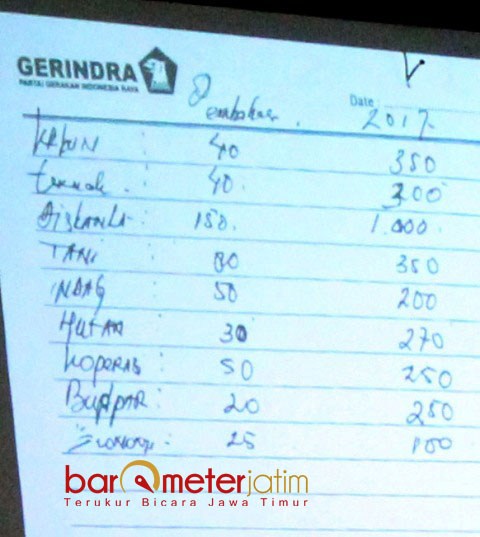 GERINDRA
PARTAI GERAKAN INDONESIA RAYA
Date:
2017
KEBUN : 40 350
ternak : 40. 300
Diskanla : 150. 1.000
TANI : 80 350
INDAG : 50 200
HUTAN : 30 270
KOPERASI : 50 250
BUDPAR : 20 250
25 100
barometerjatim
Terukur Bicara Jawa Timur